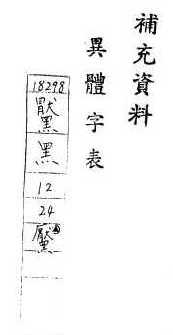 補充資料
異體字表
18298
黑
12
24
黶